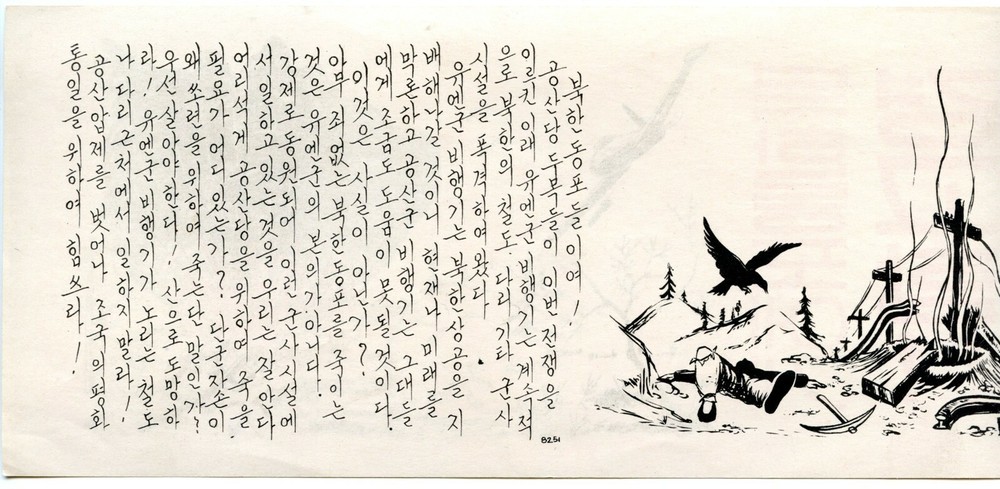 북한동포들이여!
공산당 두목들이 이번 전쟁을
이르킨 이래 유엔군 비행기는 계속적
으로 북한의 철도 다리 기타 군사
시설을 폭격하여 왔다.
유엔군 비행기는 북한상공을 지
배해나갈 것이니 현재나 미래를
막론하고 공산군 비행기는 그대들
에게 조금도 도움이 못될것이다.
이것은 사실이 아닌가?
아무 죄없는 북한동포를 죽이는
것은 유엔군의 본의가 아니다.
강제로 동원되어 이런 군사시설에
서 일하고 있는것을 우리는 잘 안다
어리석게 공산당을 위하여 죽을
필요가 어디 있는가? 단군자손이
왜 쏘련을 위하여 죽는단 말인가?
우선 살아야한다! 산으로 도망하
라! 유엔군 비행기가 노리는 철도
나 다리 근처에서 일하지 말라!
공산압제를 벗어나 조국의 평화
통일을 위하여 힘쓰라!
8251